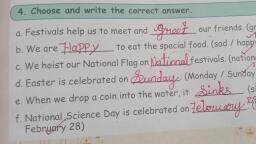 4. Choose and write the correct answer.
a. Festivals help us to meet and greet our friends. (gr
b. We are Happy to eat the special food. (sad / happ
c. We hoist our National Flag on National festivals. (nation
d. Easter is celebrated on Sunday. (Monday / Sunday
e. When we drop a coin into the water, it Sinks (s
f. National Science Day is celebrated on February 28
February 28)